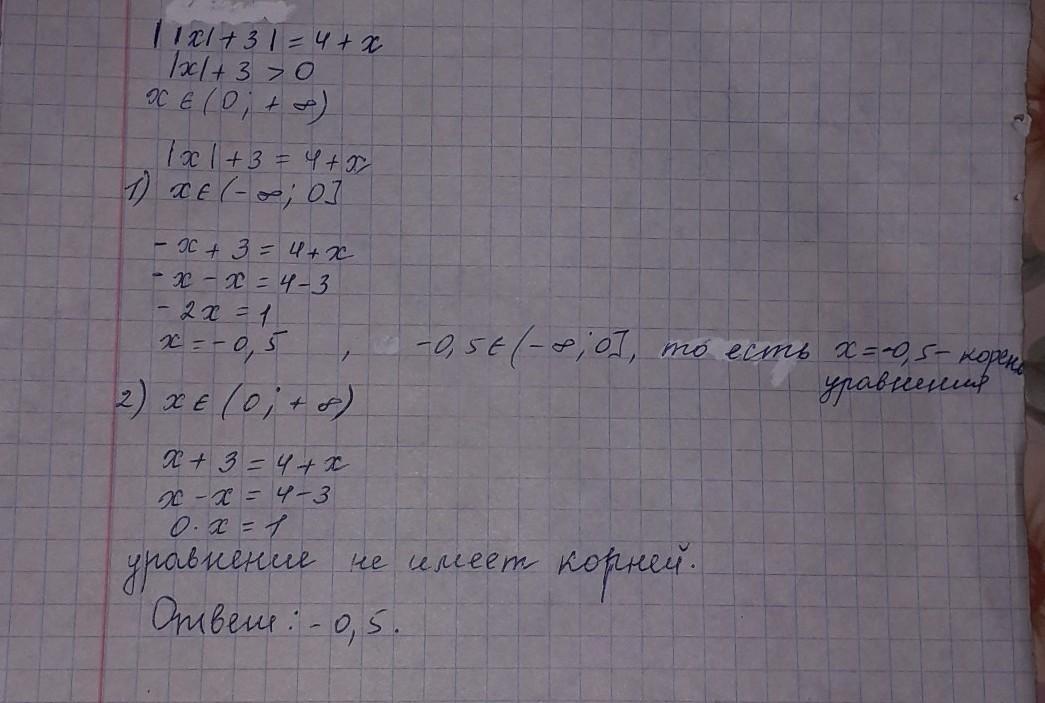 ||x|+3|=4+x
|x|+3 > 0
x ∈ (0; +∞)
|x|+3 = 4+x
1) x ∈ (-∞; 0]
-x+3=4+x
-x-x=4-3
-2x=1
x=-0,5 , -0,5 ∈ (-∞; 0], то есть x=-0,5 - корень
уравнения
2) x ∈ (0; +∞)
x+3=4+x
x-x=4-3
0·x=1
уравнение не имеет корней.
Ответ: -0,5.